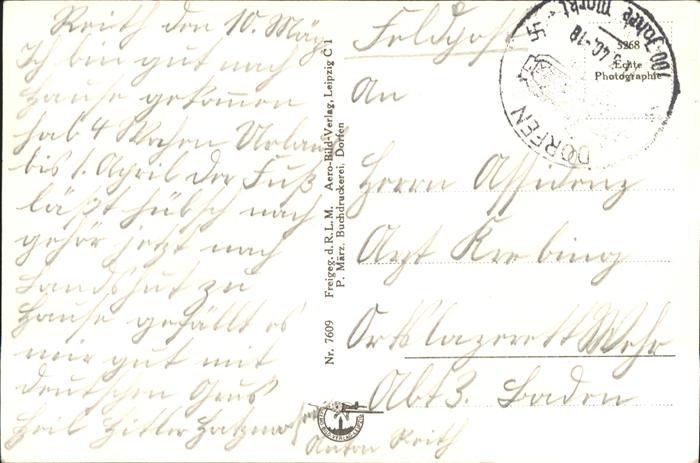 Reith den 10. März
Ich bin gut nach
Hause gekommen
hab 4 Wochen Urlaub
bis 1. April der Fuß
läßt hübsch nach
gehör jetzt nach
Landshut zu
Hause gefällt es
mir gut mit
deutschen Grus
Heil Hitler
Anton Reith
Nr. 7609 Freigeg. d. R. L. M. Aero-Bild-Verlag, Leipzig C 1
P. März, Buchdruckerei, Dorfen
Feldpost
An
Herrn Assidenz
Arzt Krebing
Ortslazerett Wehr
Abt 3. Baden
DORFEN
700 Jahre Markt
40.-18
5268
Echte
Photographie